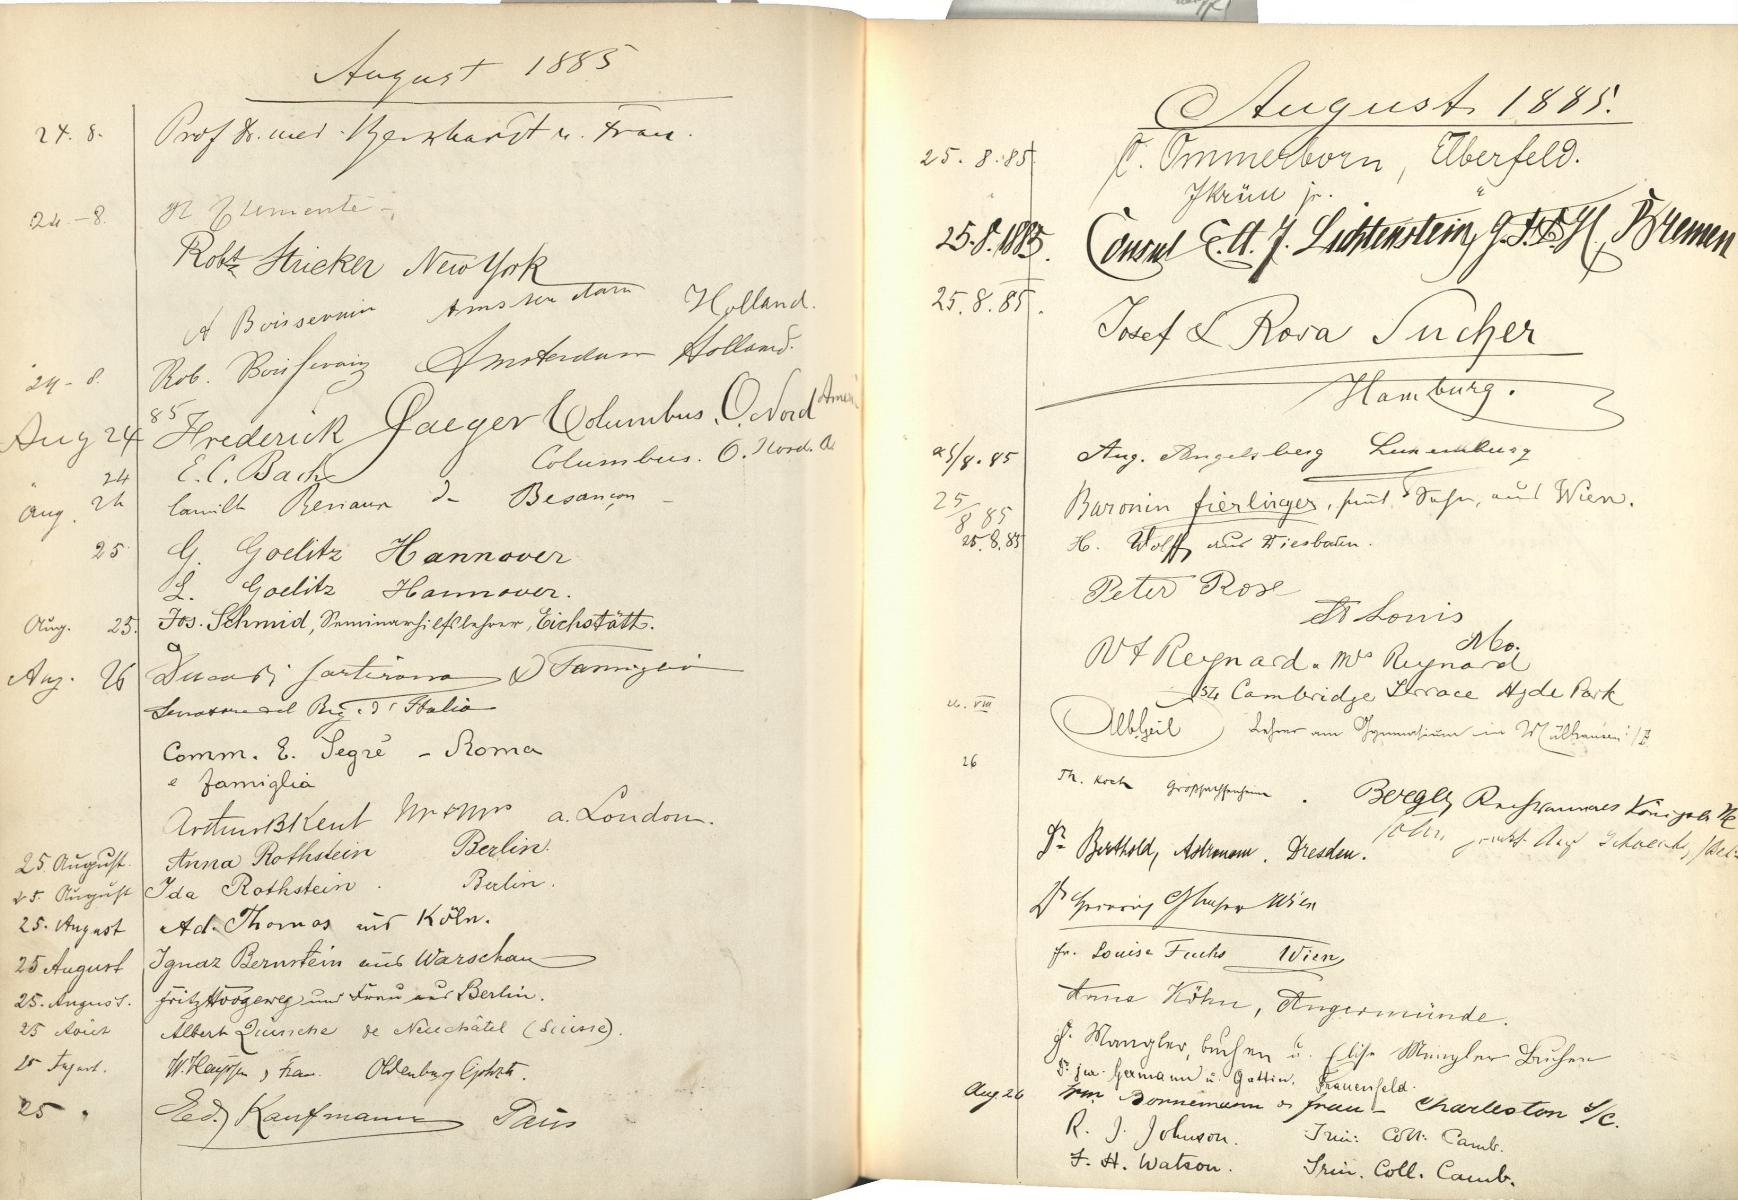 August 1885
24. 8. Prof Dr. med. u. Frau.
24.-8.
Robt Stricker New York
A Boissevain Amsterdam Holland.
24-8. Rob. Boissevain Amsterdam Holland.
Aug 24 85 Frederick Jaeger Columbus. O. Nord Amer
" 24 E. C. Bach Columbus. O. Nord. A
Aug. 24 Camille Renaux de Besançon
25 G. Goelitz Hannover
L. Goelitz Hannover.
Aug. 25. Jos. Schmid, Seminarhilfslehrer, Eichstätt.
Aug. 26 Sartirana & Famiglia
Senatore del Reg. d'Italia
Comm. E. Segré - Roma
e famiglia
Arthur B Kent Mr & Mrs a. London.
25 August. Anna Rothstein Berlin.
25. August Ida Rothstein. Berlin.
25. August Ad. Thomas aus Köln.
25 August Ignaz Bernstein aus Warschau
25. August. Fritz Hoogeweg und Frau aus Berlin.
25 Août Albert Quinche de Neuchâtel (Suisse).
25 August. Oldenburg
25 " Ed. Kaufmann Paris
August 1885.
25. 8. 85. C. Ommerborn, Elberfeld.
" J Krüll jr. "
25.8.1885. Consul E. H. J. Lichtenstein, Bremen
25. 8. 85. Josef & Rosa Sucher
Hamburg.
25/8. 85 Aug. Angelsberg Luxemburg
25/8 85 Baronin Fierlinger, sammt Sohn, aus Wien.
25. 8. 85 H. Wolff aus Wiesbaden.
Peter Rose
St Louis
Mo.
W F Reynard. & Mrs Reynard
Cambridge Terrace Hyde Park
26. VIII Albheil Lehrer am Gymnasium in Mülhausen i/E
26 Th. Koch Großsachsenheim.
Dr Berthold, Astronom. Dresden.
Dr Wien
Fr. Louise Fuchs Wien
Anna Köhn, Angermünde.
J. Mangler, Buchen u. Elise Mangler Buchen
Dr jur. Germann u. Gattin. Frauenfeld.
Aug 26 Wm Bornemann & Frau - Charleston S/C.
R. J. Johnson. Trin: Coll: Camb.
F. H. Watson. Trin. Coll. Camb.